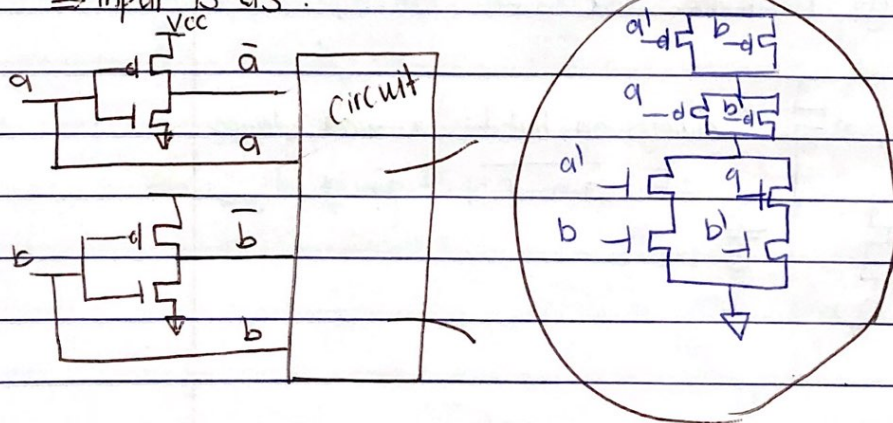 ⇒ input is as :
Vcc
a
ā
a
circuit
b
b̄
b
a' b
a b'
a' a
b b'